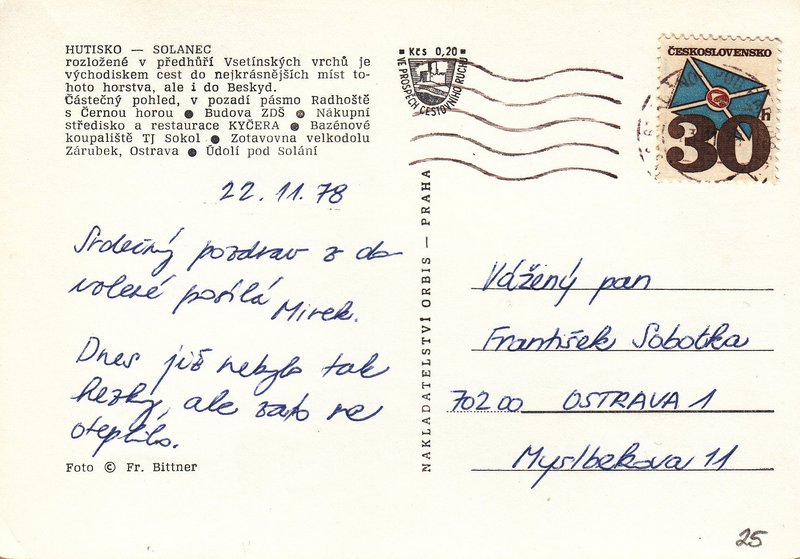 HUTISKO — SOLANEC
rozložené v předhůří Vsetínských vrchů je
východiskem cest do nejkrásnějších míst to-
hoto horstva, ale i do Beskyd.
Částečný pohled, v pozadí pásmo Radhoště
s Černou horou ● Budova ZDŠ ● Nákupní
středisko a restaurace KYČERA ● Bazénové
koupaliště TJ Sokol ● Zotavovna velkodolu
Zárubek, Ostrava ● Údolí pod Solání
22.11.78
Srdečný pozdrav z do-
volené posílá
Mirek.
Dnes již nebylo tak
hezky, ale zato se
oteplilo.
Foto © Fr. Bittner
NAKLADATELSTVÍ ORBIS — PRAHA
Kčs 0,20
VE PROSPĚCH CESTOVNÍHO RUCHU
ČESKOSLOVENSKO
30h
Vážený pan
František Sobotka
702 00 OSTRAVA 1
Myslbekova 11
25